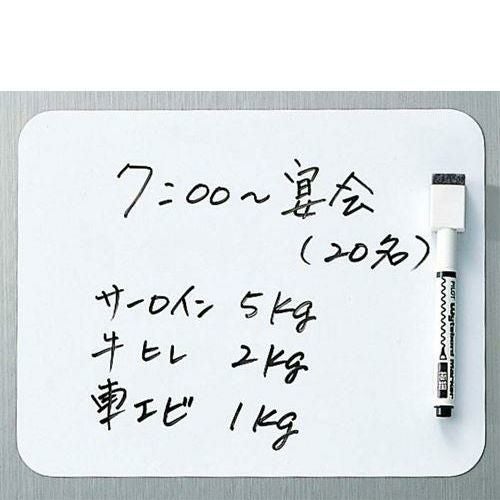 7:00〜宴会
(20名)
サーロイン 5kg
牛ヒレ 2kg
車エビ 1kg
PILOT